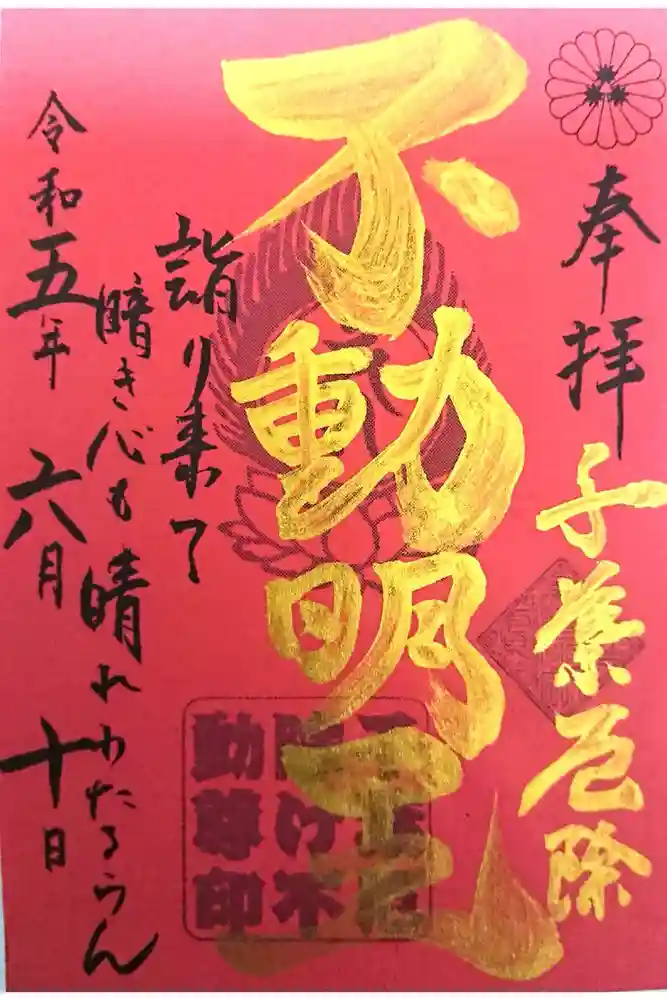 奉拝
千葉厄除
不動明王
詣り来て
暗き心も晴れわたるらん
令和五年 六月 十日
千葉厄
除け不
動尊印